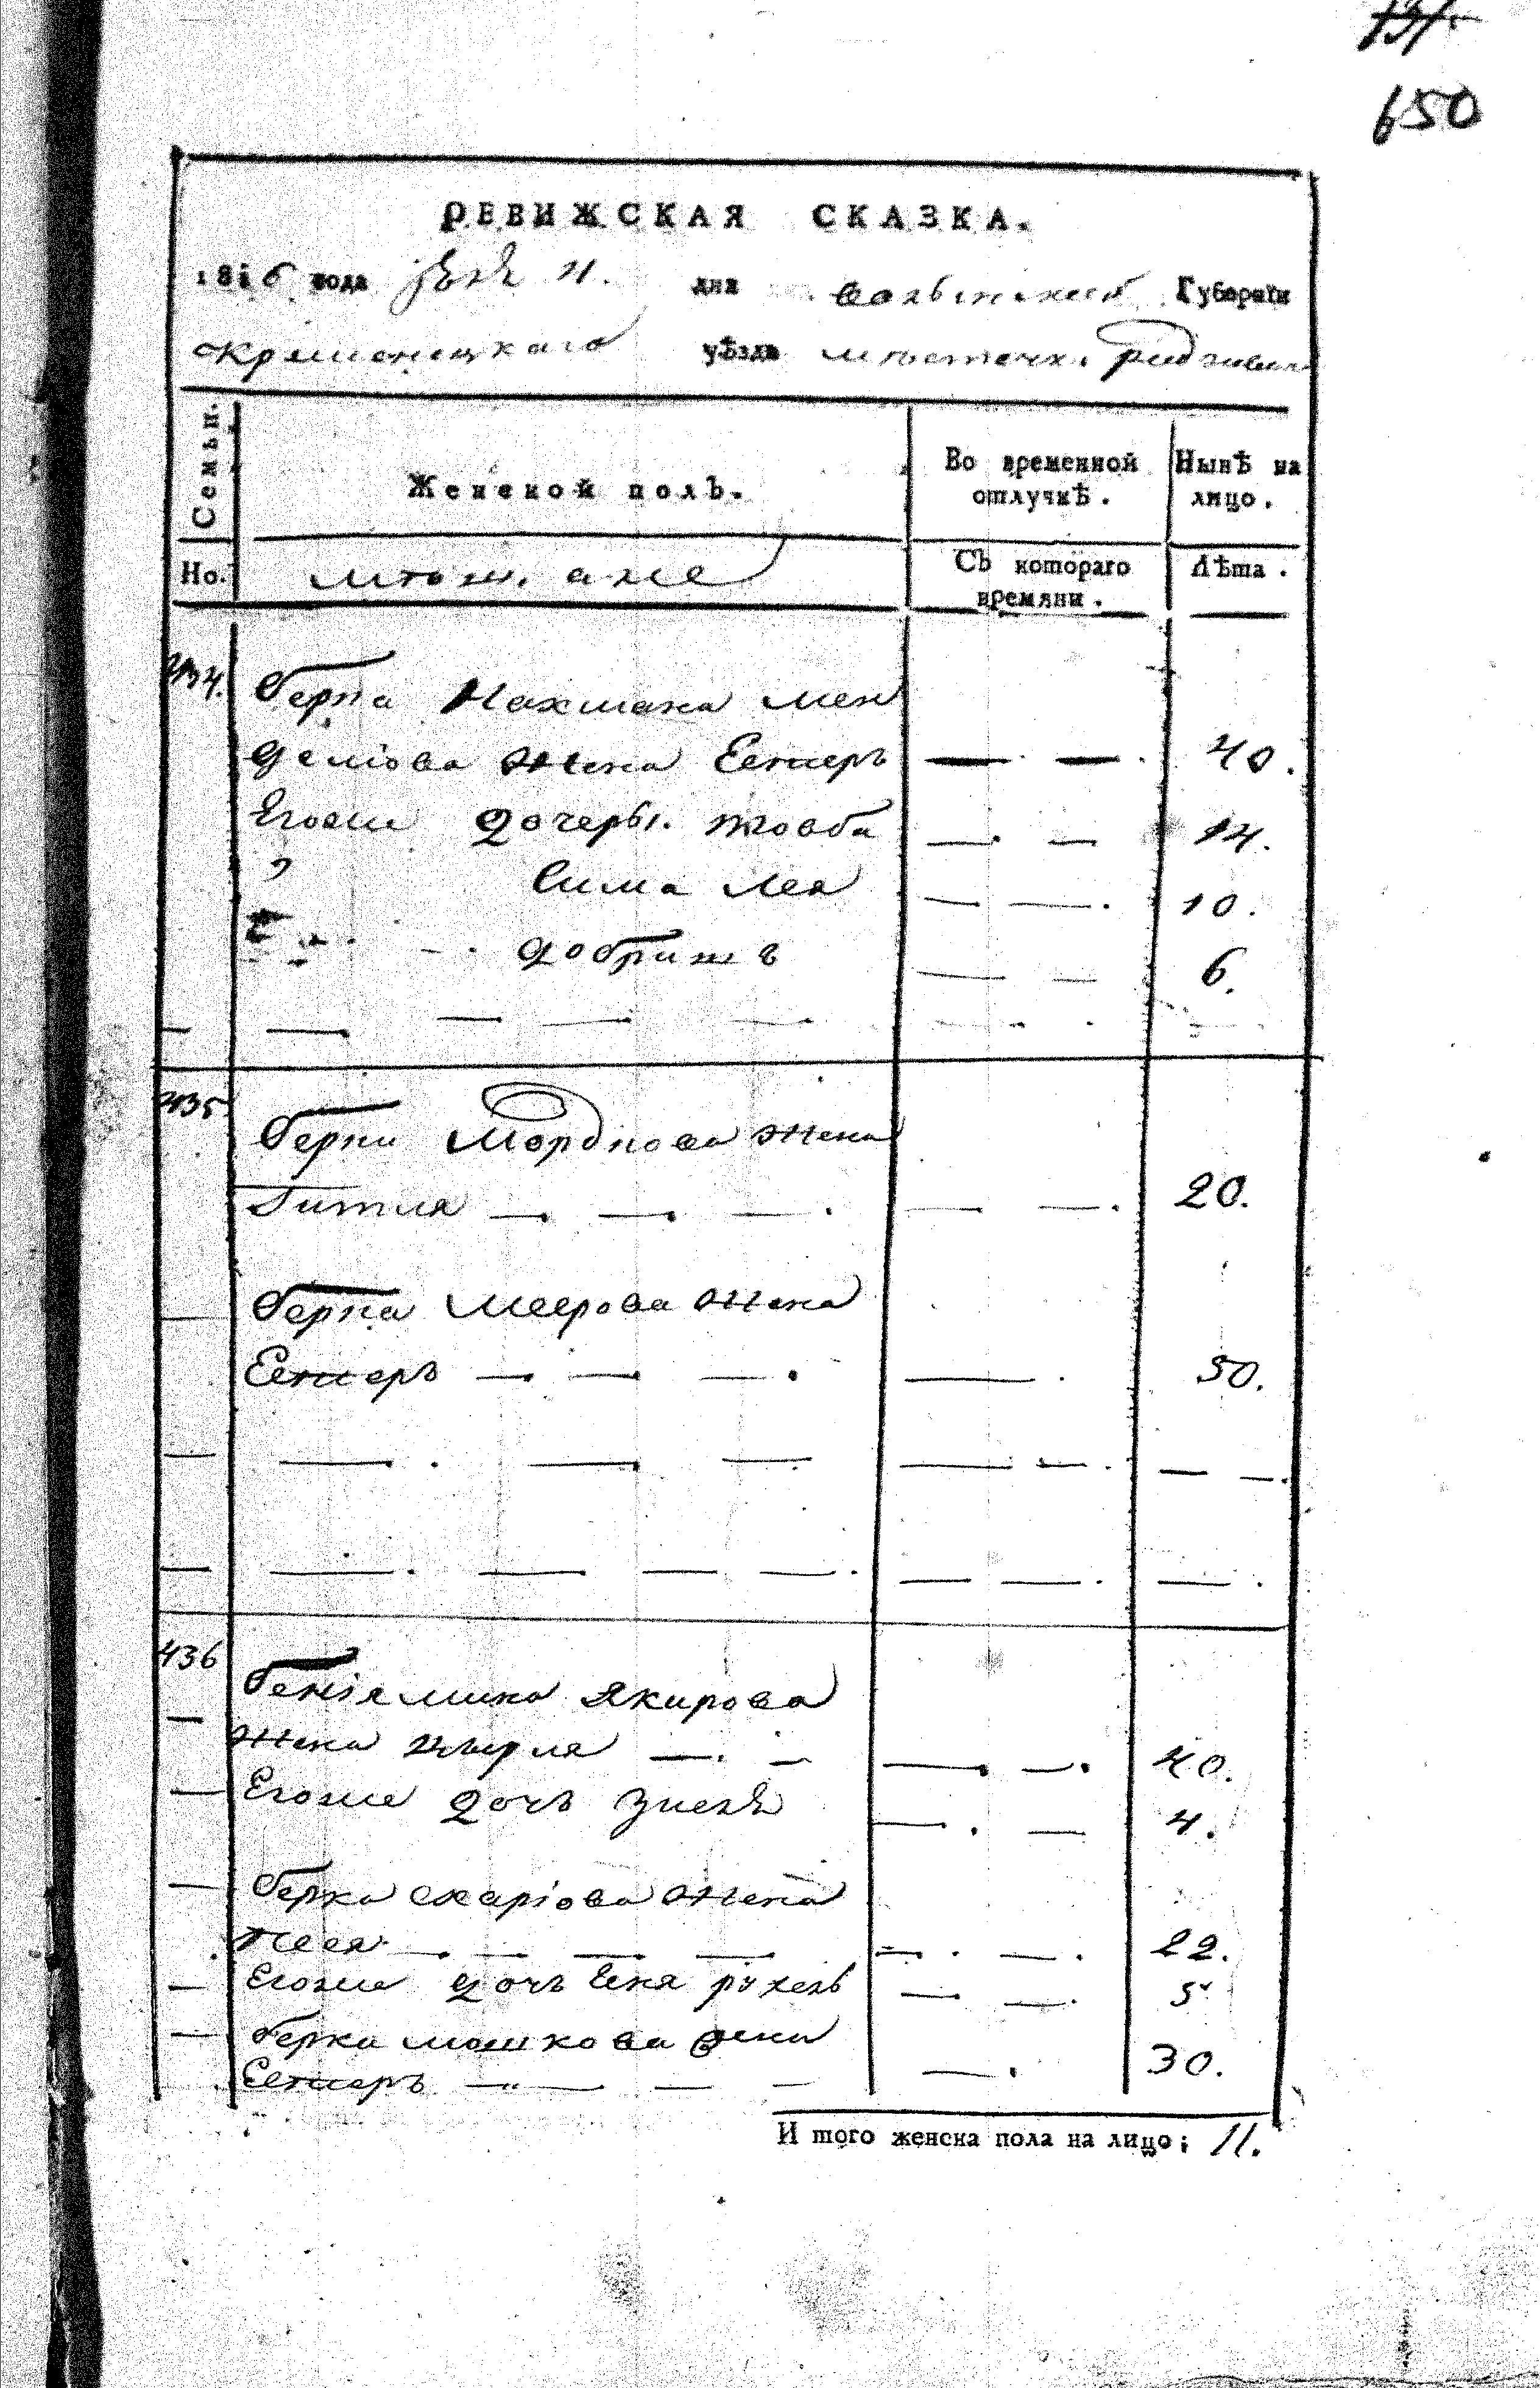 650
РЕВИЖСКАЯ СКАЗКА.
1816 года 11. дня Волынской Губернїи
Кременецкаго уѣзда местечк. Радзивил
Семьи.
Женской полъ.
Во временной отлучкѣ.
Нынѣ на лицо.
Но.
Съ котораго времяни.
Лѣта.
434. Берка Нахмана Мен
делiова жена Естеръ — — 40.
Егоже дочеры. Товба — — 14.
Сима Лея — — 10.
Добришъ — — 6.
435 Берки Мордкова жена
Гитля — — — — — 20.
Берка Меерова жена
Естеръ — — — — 50.
436
Бенiямина Якирова
жена — — — — 40.
Егоже дочъ — — 4.
Берка жена
Песя — — — — — 22.
Егоже дочъ Рухель — — 5
Берка Мошкова жена
Естеръ — — — — — 30.
И того женска пола на лицо; 11.